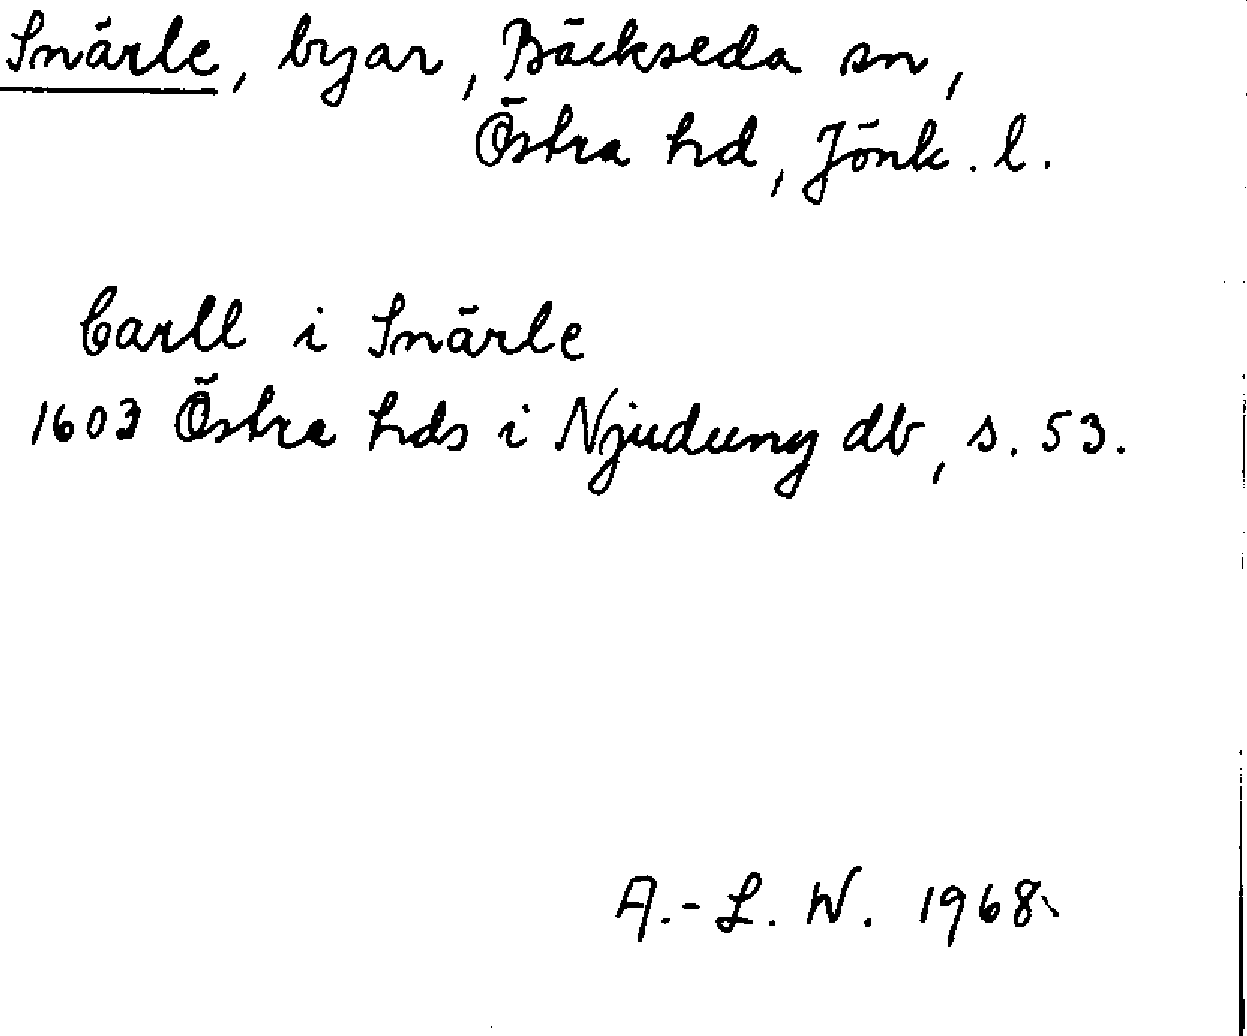 Snärle, byar, Bäckseda sn,
Östra hd, Jönk. l.
Carll i Snärle
1603 Östra hds i Njudung db, s. 53.
A.-L. W. 1968